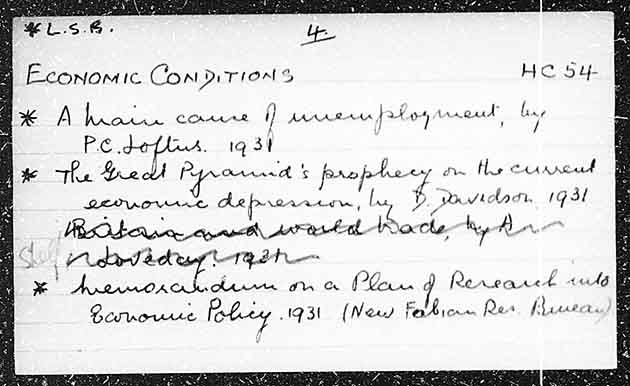 *L.S.B. 4.
ECONOMIC CONDITIONS HC 54
* A main cause of unemployment, by
P.C. Loftus. 1931
* The Great Pyramid's prophecy on the current
economic depression, by D. Davidson 1931
Britain and world trade, by A
Loveday. 1931
* Memorandum on a Plan of Research into
Economic Policy. 1931 (New Fabian Res. Bureau)